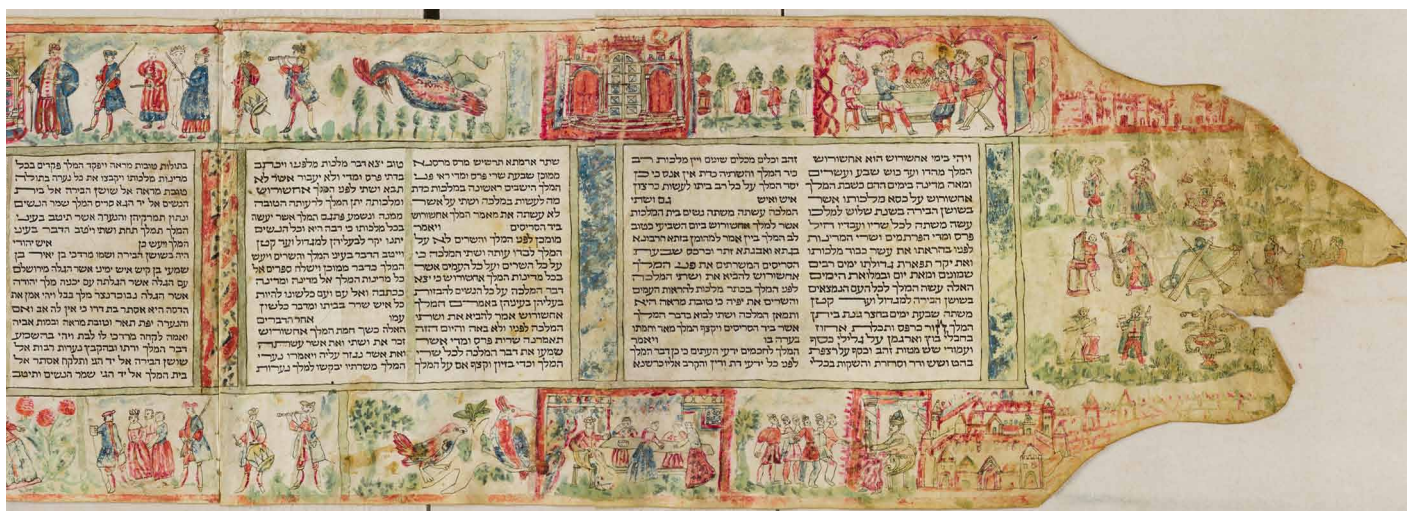 ויהי בימי אחשורוש הוא אחשורוש
המלך מהדו ועד כוש שבע ועשרים
ומאה מדינה בימים ההם כשבת המלך
אחשורוש על כסא מלכותו אשר
בשושן הבירה בשנת שלוש למלכו
עשה משתה לכל שריו ועבדיו חיל
פרס ומדי הפרתמים ושרי המדינות
לפניו בהראתו את עשר כבוד מלכותו
ואת יקר תפארת גדולתו ימים רבים
שמונים ומאת יום ובמלואת הימים
האלה עשה המלך לכל העם הנמצאים
בשושן הבירה למגדול ועד קטן
משתה שבעת ימים בחצר גנת ביתן
המלך חור כרפס ותכלת אחוז
בחבלי בוץ וארגמן על גלילי כסף
ועמודי שש מטות זהב וכסף על רצפת
בהט ושש ודר וסחרת והשקות בכלי
זהב וכלים מכלים שונים ויין מלכות רב
כיד המלך והשתיה כדת אין אנס כי כן
יסד המלך על כל רב ביתו לעשות כרצון
איש ואיש גם ושתי
המלכה עשתה משתה נשים בית המלכות
אשר למלך אחשורוש ביום השביעי כטוב
לב המלך ביין אמר למהומן בזתא חרבונא
בגתא ואבגתא זתר וכרכס שבעת
הסריסים המשרתים את פני המלך
אחשורוש להביא את ושתי המלכה
לפני המלך בכתר מלכות להראות העמים
והשרים את יפיה כי טובת מראה היא
ותמאן המלכה ושתי לבוא בדבר המלך
אשר ביד הסריסים ויקצף המלך מאד וחמתו
בערה בו ויאמר
המלך לחכמים ידעי העתים כי כן דבר המלך
לפני כל ידעי דת ודין והקרב אליו כרשנא
שתר אדמתא תרשיש מרס מרסנא
ממוכן שבעת שרי פרס ומדי ראי פני
המלך הישבים ראשונה במלכות כדת
מה לעשות במלכה ושתי על אשר
לא עשתה את מאמר המלך אחשורוש
ביד הסריסים ויאמר
מומכן לפני המלך והשרים לא על
המלך לבדו עותה ושתי המלכה כי
על כל השרים ועל כל העמים אשר
בכל מדינות המלך אחשורוש כי יצא
דבר המלכה על כל הנשים להבזות
בעליהן בעיניהן באמרם המלך
אחשורוש אמר להביא את ושתי
המלכה לפניו ולא באה והיום הזה
תאמרנה שרות פרס ומדי אשר
שמעו את דבר המלכה לכל שרי
המלך וכדי בזיון וקצף אם על המלך
טוב יצא דבר מלכות מלפניו ויכתב
בדתי פרס ומדי ולא יעבור אשר לא
תבא ושתי לפני המלך אחשורוש
ומלכותה יתן המלך לרעותה הטובה
ממנה ונשמע פתגם המלך אשר יעשה
בכל מלכותו כי רבה היא וכל הנשים
יתנו יקר לבעליהן למגדול ועד קטן
וייטב הדבר בעיני המלך והשרים ויעש
המלך כדבר ממוכן וישלח ספרים אל
כל מדינות המלך אל מדינה ומדינה
ככתבה ואל עם ועם כלשונו להיות
כל איש שרר בביתו ומדבר כלשון
עמו אחר הדברים
האלה כשך חמת המלך אחשורוש
זכר את ושתי ואת אשר עשתה
ואת אשר נגזר עליה ויאמרו נערי
המלך משרתיו יבקשו למלך נערות
בתולות טובות מראה ויפקד המלך פקידים בכל
מדינות מלכותו ויקבצו את כל נערה בתולה
טובת מראה אל שושן הבירה אל בית
הנשים אל יד הגא סריס המלך שמר הנשים
ונתון תמרקיהן והנערה אשר תיטב בעיני
המלך תמלך תחת ושתי וייטב הדבר בעיני
המלך ויעש כן איש יהודי
היה בשושן הבירה ושמו מרדכי בן יאיר בן
שמעי בן קיש איש ימיני אשר הגלה מירושלם
עם הגלה אשר הגלתה עם יכניה מלך יהודה
אשר הגלה נבוכדנצר מלך בבל ויהי אמן את
הדסה היא אסתר בת דדו כי אין לה אב ואם
והנערה יפת תאר וטובת מראה ובמות אביה
ואמה לקחה מרדכי לו לבת ויהי בהשמע
דבר המלך ודתו ובהקבץ נערות רבות אל
שושן הבירה אל יד הגי ותלקח אסתר אל
בית המלך אל יד הגי שמר הנשים ותיטב